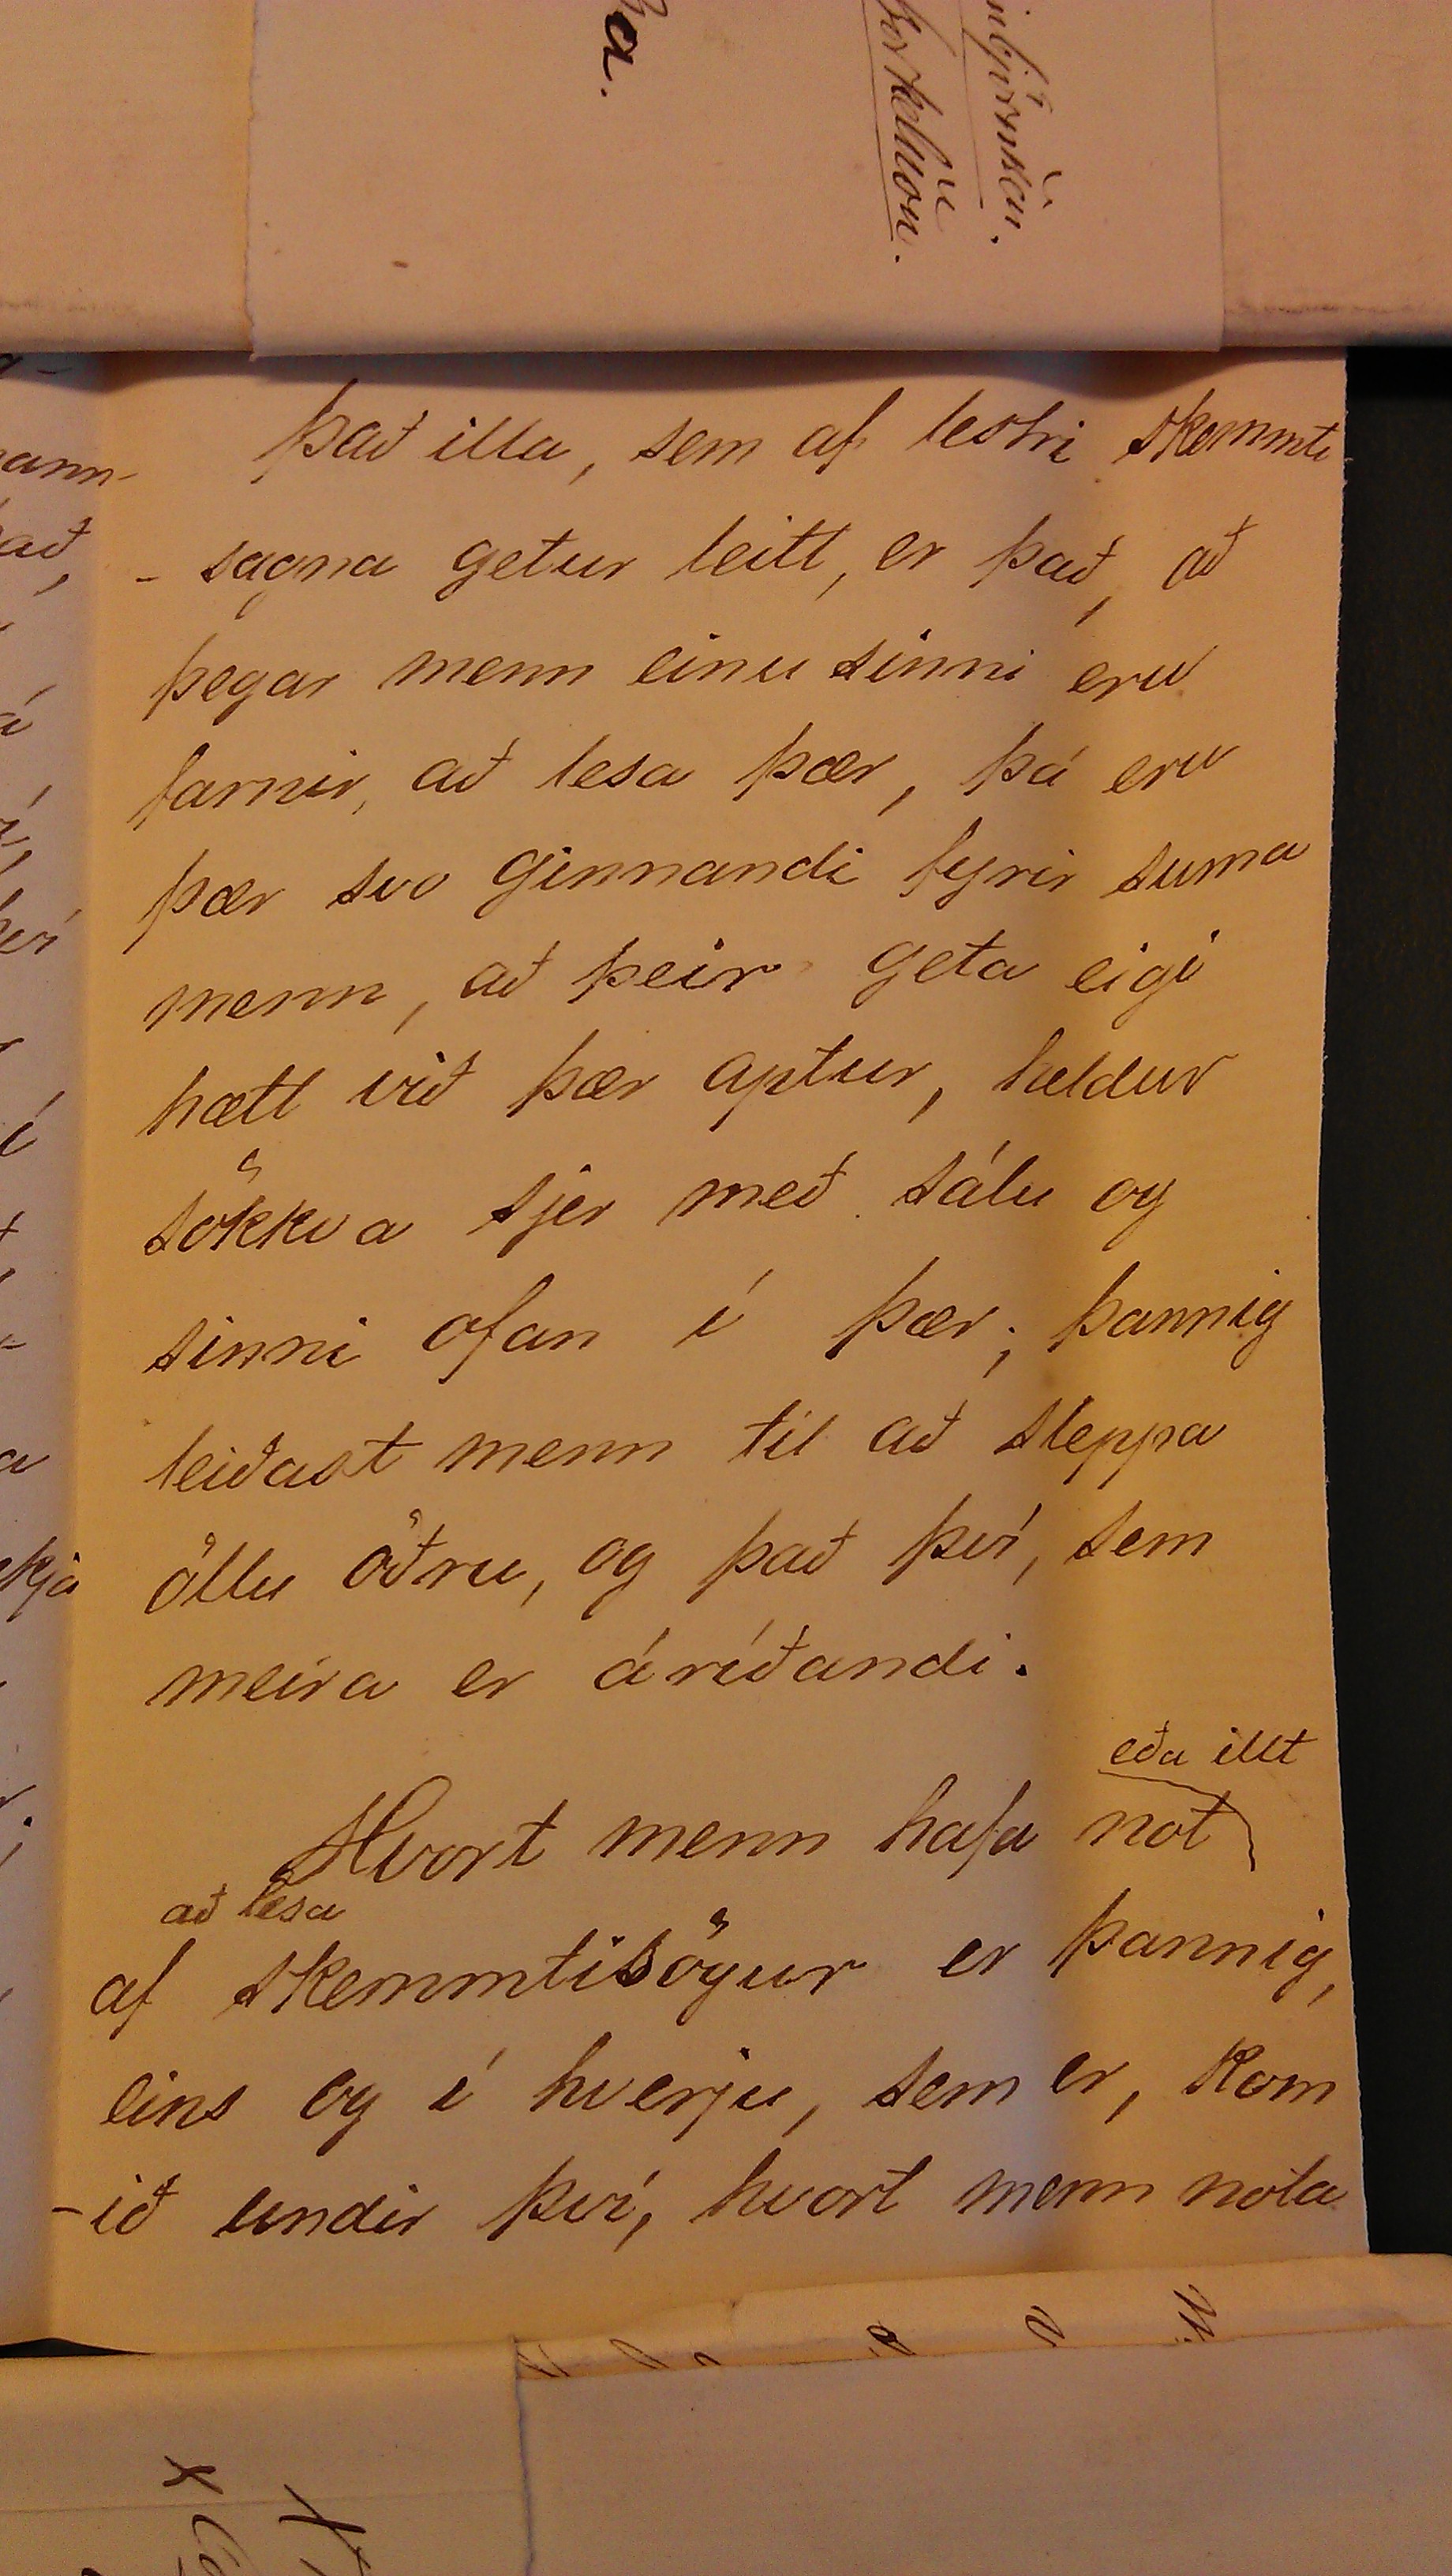 það illa, sem af lestri skemmti
- sagna getur leitt, er það, að
þegar menn einu sinni eru
farnir, að lesa þær, þá eru
þær svo ginnandi fyrir suma
menn, að þeir geta eigi
hætt við þær aptur, heldur
sökkva sjer með sálu og
sinni ofan í þær; þannig
leiðast menn til að sleppa
öllu öðru, og það því, sem
meira er áríðandi.
eða illt
Hvort menn hafa not
að lesa
af skemmtisögur er þannig,
eins og í hverju, sem er, kom
-ið undir því, hvort menn nota